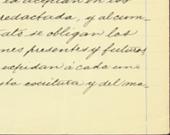 es aceptan en los
redactada, y al cum-
ato se obligan los
nes presentes y futuros
expedan á cada una
sta escritura y del ma-